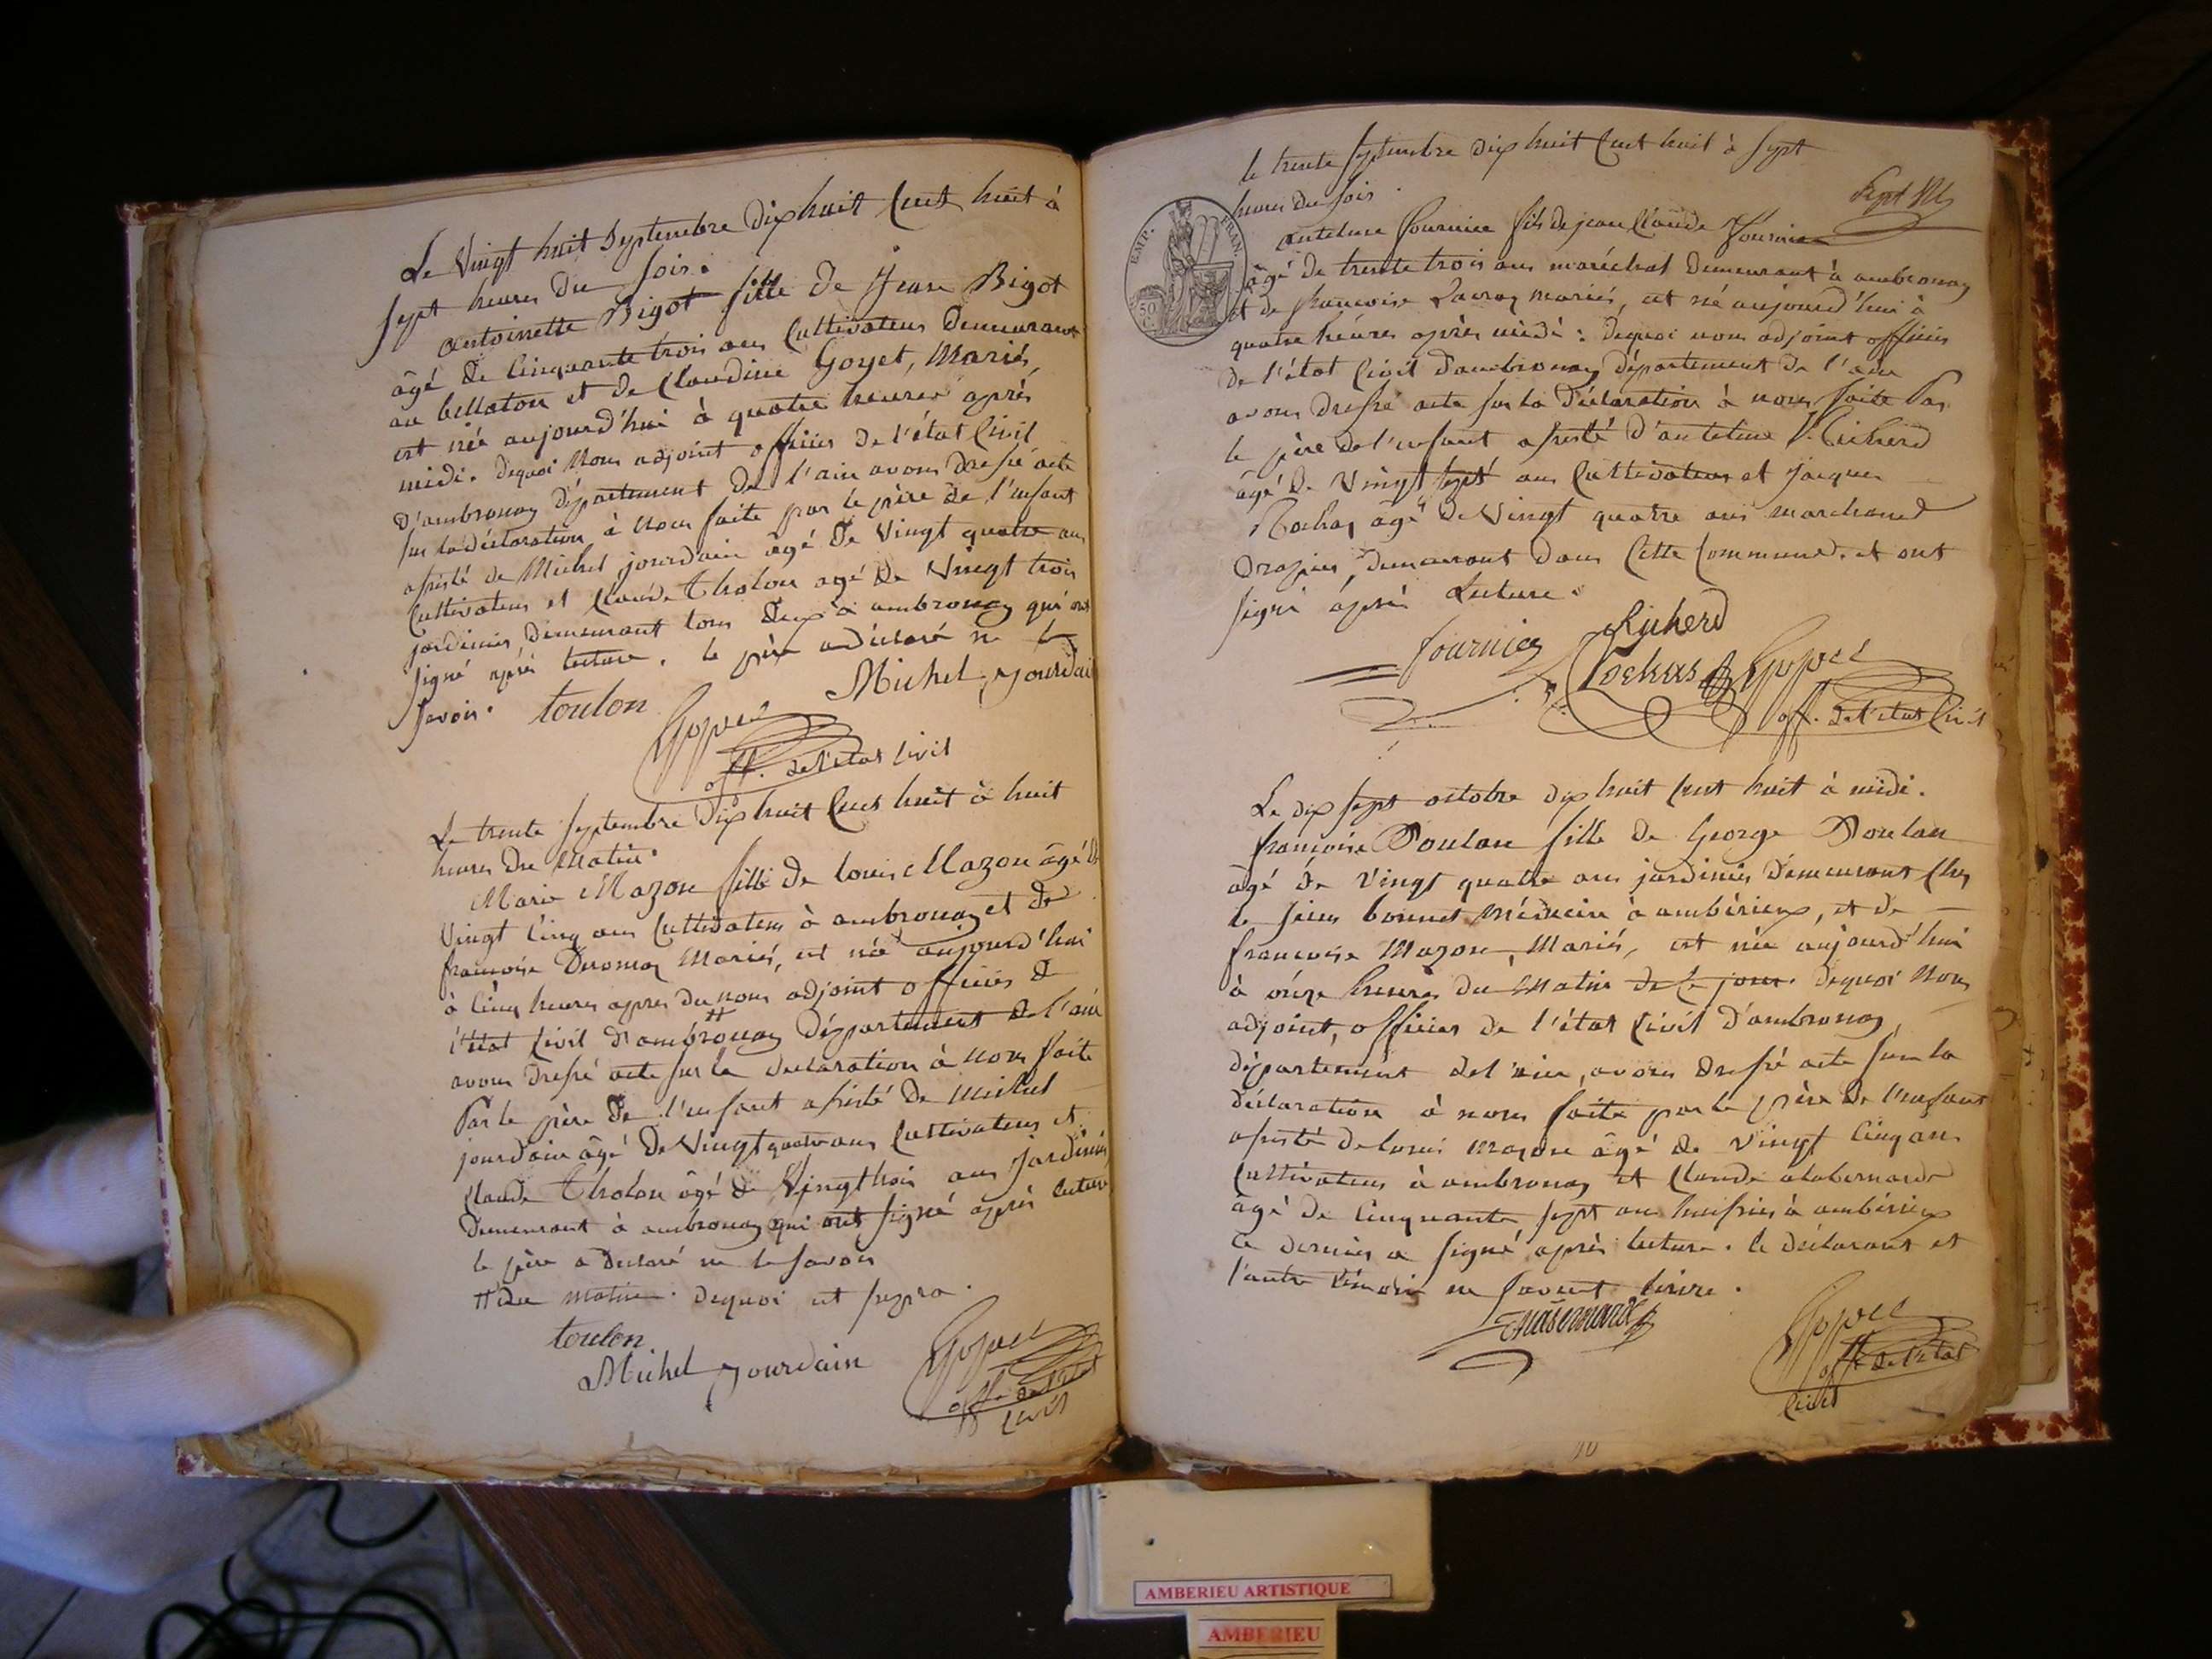 Le Vingt huit Septembre dix huit Cent huit à
sept heures du soir.
antoinette Bigot fille de Jean Bigot
âgé de Cinquante trois ans Cultivateur demeurant
au bellaton et de Claudine Goyet, Mariés,
est née aujourd'hui à quatre heures après
midi. dequoi Nous adjoint officier de l'état Civil
d'ambronay département de l'ain avons dressé acte
sur la déclaration à nous faite par le père de l'enfant
assisté de Michel jourdain âgé de Vingt quatre ans
Cultivateur et Claude Tholon agé de Vingt trois
jardinier, demeurant tous deux à ambronay qui ont
signé après lecture. le père a déclaré ne le
savoir.
toulon
Michel jourdain
off. de l'état Civil
Le trente septembre dix huit Cent huit à huit
heures du Matin.
Marie Mazon fille de louis Mazon âgé de
Vingt Cinq ans Cultivateur à ambronay et de
françoise Mariés, est née aujourd'hui
à Cinq heures apres du nous adjoint officier de
l'état Civil d'ambronay département de l'ain
avons dressé acte sur la déclaration à nous faite
Par le père de l'enfant assisté de michel
jourdain âgé de Vingt quatre ans Cultivateur et
Claude Tholon âgé de Vingt trois ans jardinier
demeurant à ambronay qui ont signé après lecture
le père a déclaré ne le savoir
# du matin. dequoi et supra.
toulon
Michel jourdain
off. de l'état
Civil
le trente septembre dix huit Cent huit à sept
heures du soir.
EMP. FRAN.
50
antelme fournier fils de jean Claude fournier
âgé de trente trois ans maréchal demeurant à ambronay
et de françoise mariés, est né aujourd'hui à
quatre heures après midi : dequoi nous adjoint officier
de l'état Civil d'ambronay département de l'ain
avons dressé acte sur la déclaration à nous faite Par
le père de l'enfant assisté d'antelme Richerd
âgé de Vingt sept ans Cultivateur et jacques
âgé de Vingt quatre ans marchand
drapier, demeurant dans Cette Commune. et ont
signé après Lecture.
fournier
Richerd
off. de l'état Civil
Le dix sept octobre dix huit Cent huit à midi.
françoise Doulan fille de George Doulan
âgé de Vingt quatre ans jardinier demeurant chez
le sieur bonnet Médecin à ambérieux, et de
françoise Mazon, Mariés, est née aujourd'hui
à onze heures du Matin de Ce jour. dequoi Nous
adjoint, officier de l'état Civil d'ambronay,
département del'ain, avons dressé acte sur la
déclaration à nous faite par le père de l'enfant
assisté de louis mazon âgé de Vingt Cinq ans
Cultivateur à ambronay et Claude
âgé de Cinquante sept ans huissier à ambérieux
ce dernier a signé après lecture. le déclarant et
l'autre témoin ne savent écrire.
off. de l'état
Civil
10
AMBERIEU ARTISTIQUE
AMBERIEU